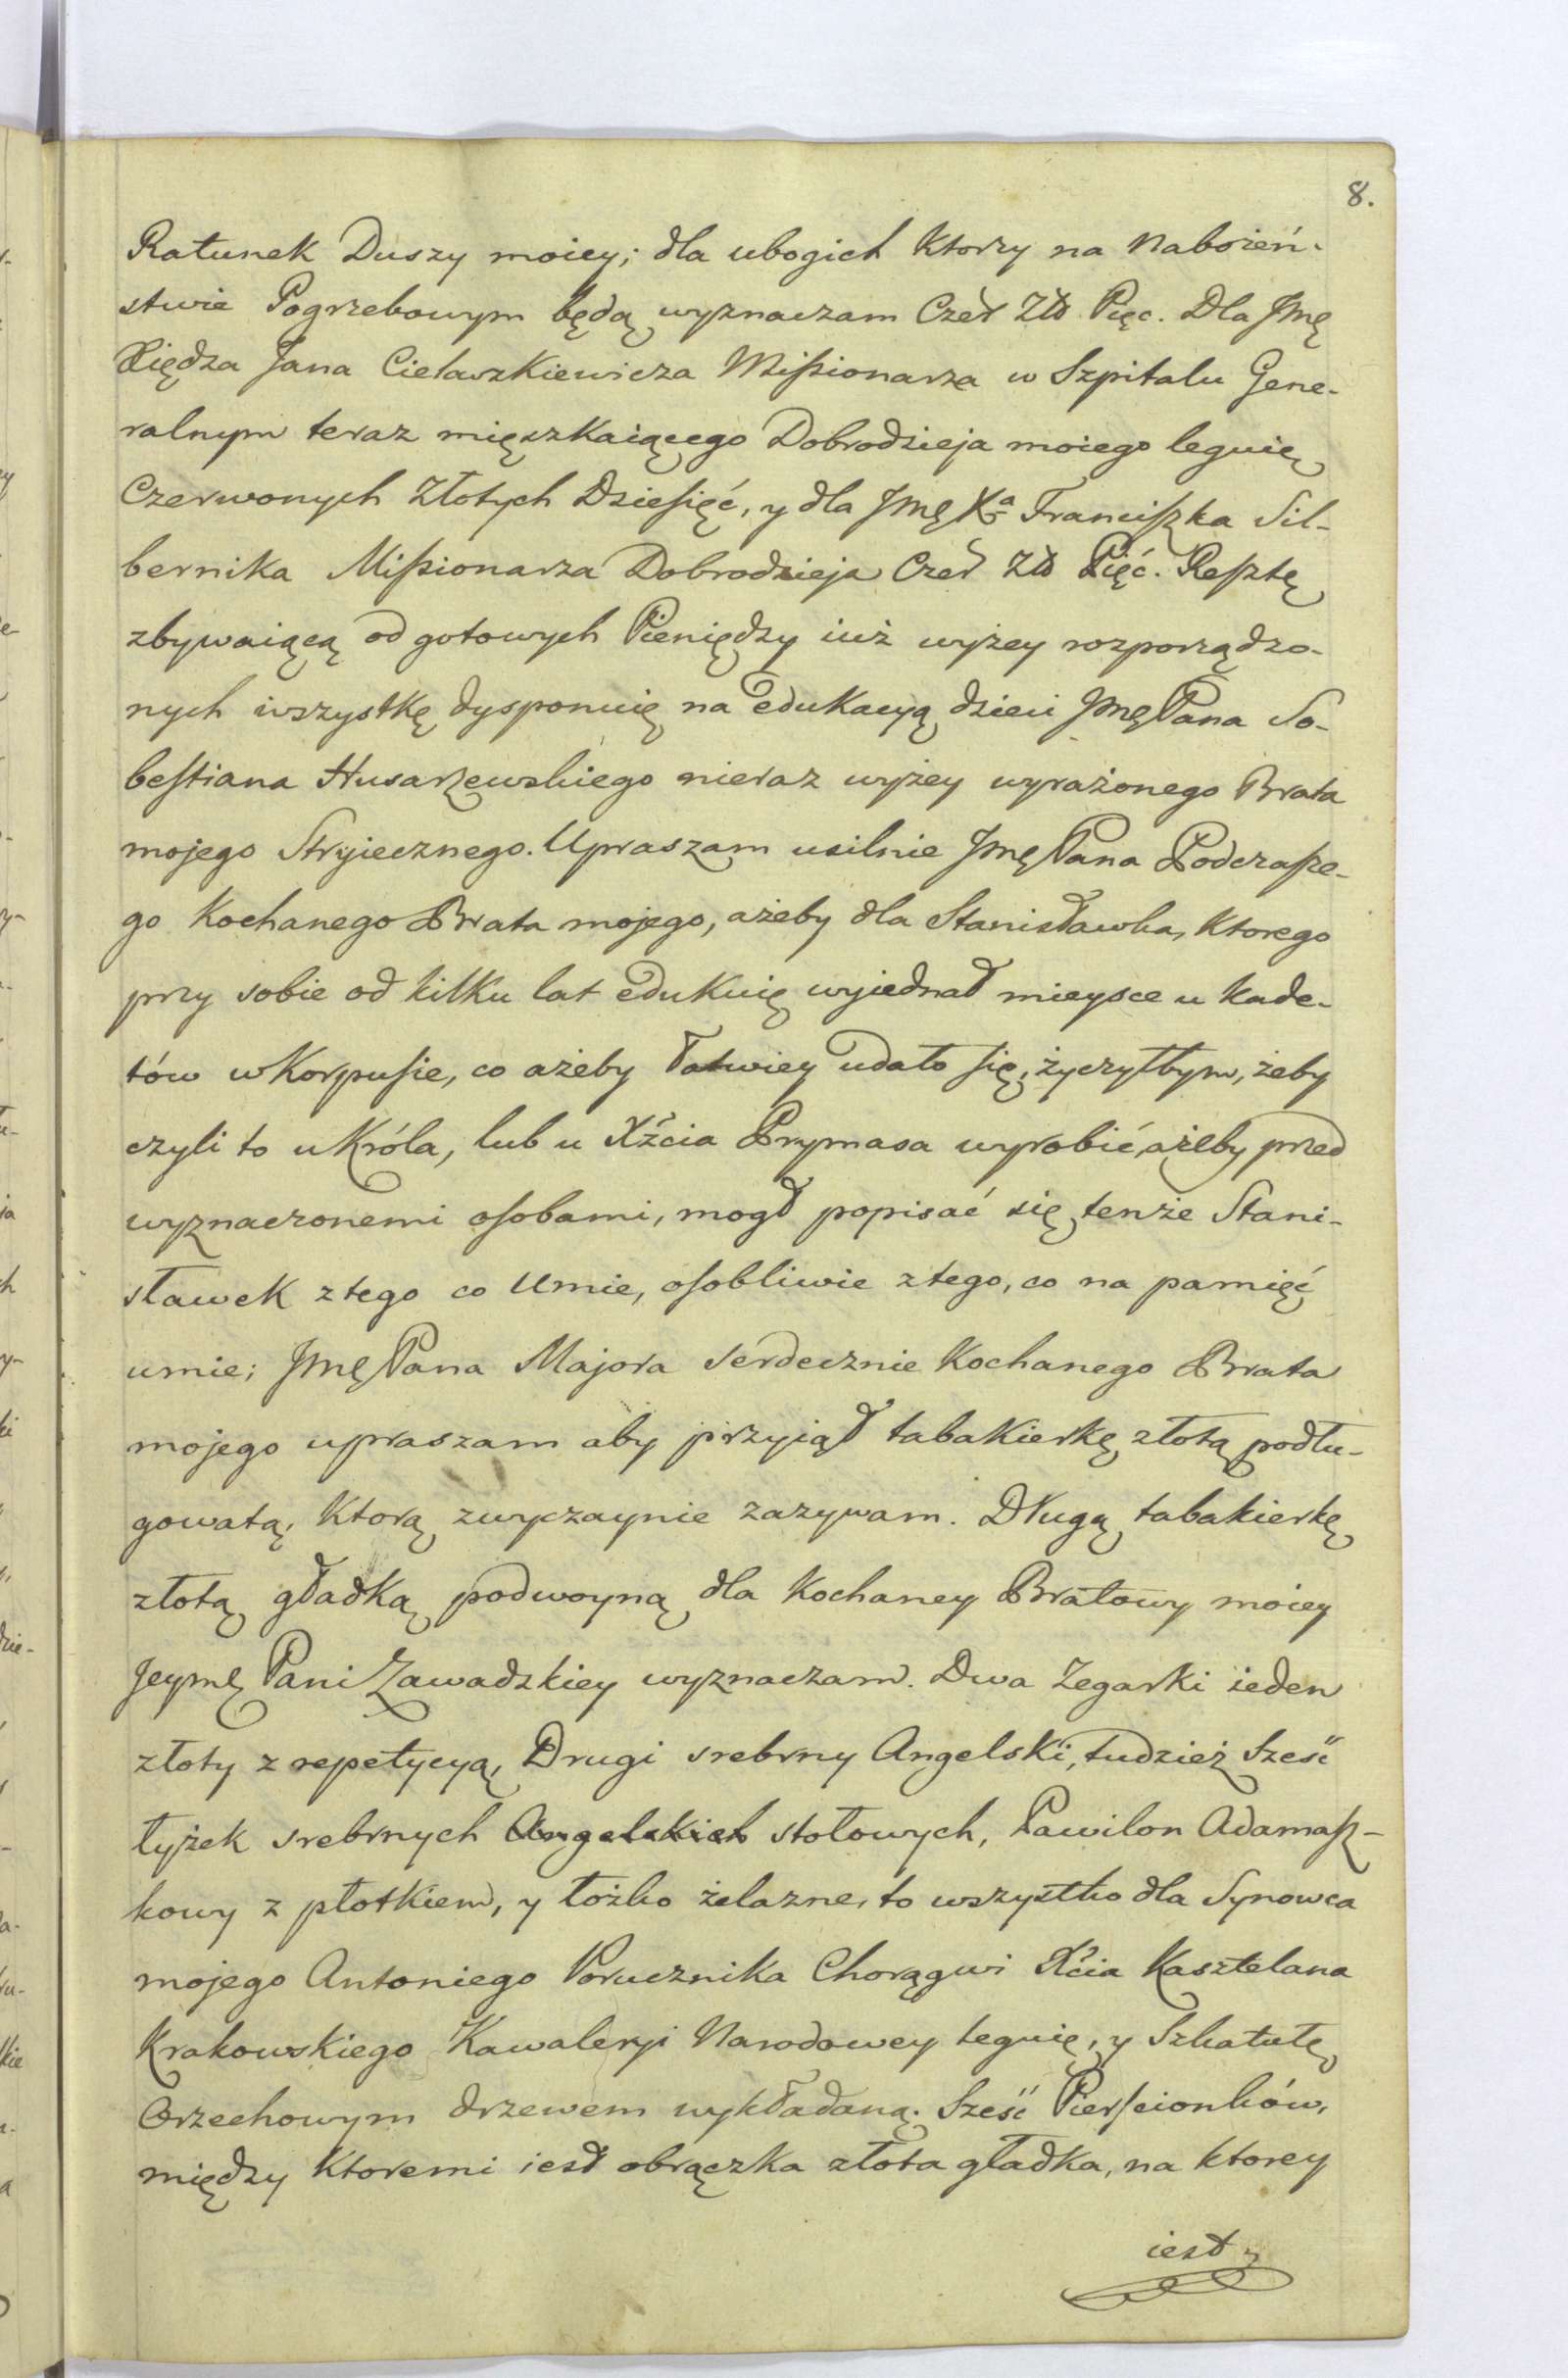 8.
Ratunek Duszy moiey; dla ubogich ktorzy na Nabożeń-
stwie Pogrzebowym będą wyznaczam Czer Złł Pięc. Dla Jmę
Xiędza Jana Cielaszkiewicza Missionarza w Szpitalu Gene-
ralnym teraz mięszkaiącego Dobrodzieja moiego leguię
Czerwonych Złotych Dziesięć, y dla Jmę Xa Franciszka Sil-
bernika Missionarza Dobrodzieja Czer Złł Pięć. Resztę
zbywaiącą od gotowych Pieniędzy iuż wyżey rozporządzo-
nych wszystkę dysponuię na edukacyą dzieci Jmę Pana So-
bestiana Husarzewskiego nieraz wyżey wyrażonego Brata
mojego Stryiecznego. Upraszam usilnie Jmę Pana Podczasze-
go Kochanego Brata mojego, ażeby dla Stanisławka, Ktorego
przy sobie od kilku lat edukuię wyiednał mieysce u kade-
tów w Korpusie, co ażeby łatwiey udało się, życzyłbym, żeby
czyli to u Króla, lub u Xżcia Prymasa wyrobić, ażeby przed
wyznaczonemi osobami, mogł popisać się tenże Stani-
sławek z tego co Umie, osobliwie z tego, co na pamięć
umie; Jmę Pana Majora Serdecznie Kochanego Brata
mojego upraszam aby przyiął tabakierkę złotą podłu-
gowatą, Ktorą zwyczaynie zazywam. Długą tabakierkę
złotą gładką podwoyną dla Kochaney Bratowy moiey
Jeymę Pani Zawadzkiey wyznaczam. Dwa Zegarki ieden
złoty z repetycyą, Drugi srebrny Angelski, tudzież Sześć
łyżek srebrnych Angelskich stołowych, Pawilon Adamasz-
kowy z płotkiem, y łożko żelazne, to wszystko dla Synowca
mojego Antoniego Porucznika Chorągwi Xcia Kasztelana
Krakowskiego Kawaleryi Narodowey leguię, y Szkatułę
Orzechowym drzewem wykładaną. Sześć Pierscionków,
między Ktoremi iest obrączka złota gładka, na ktorey
iest